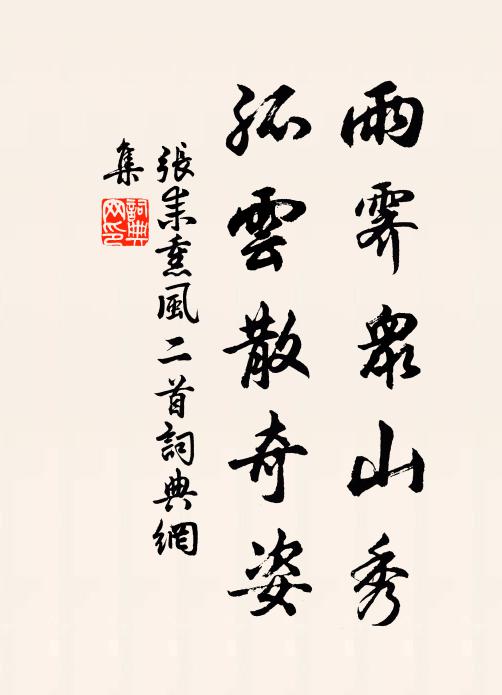 雨霽眾山秀
孤雲散奇姿
張耒薰風二首詞典網
集
詞典網印